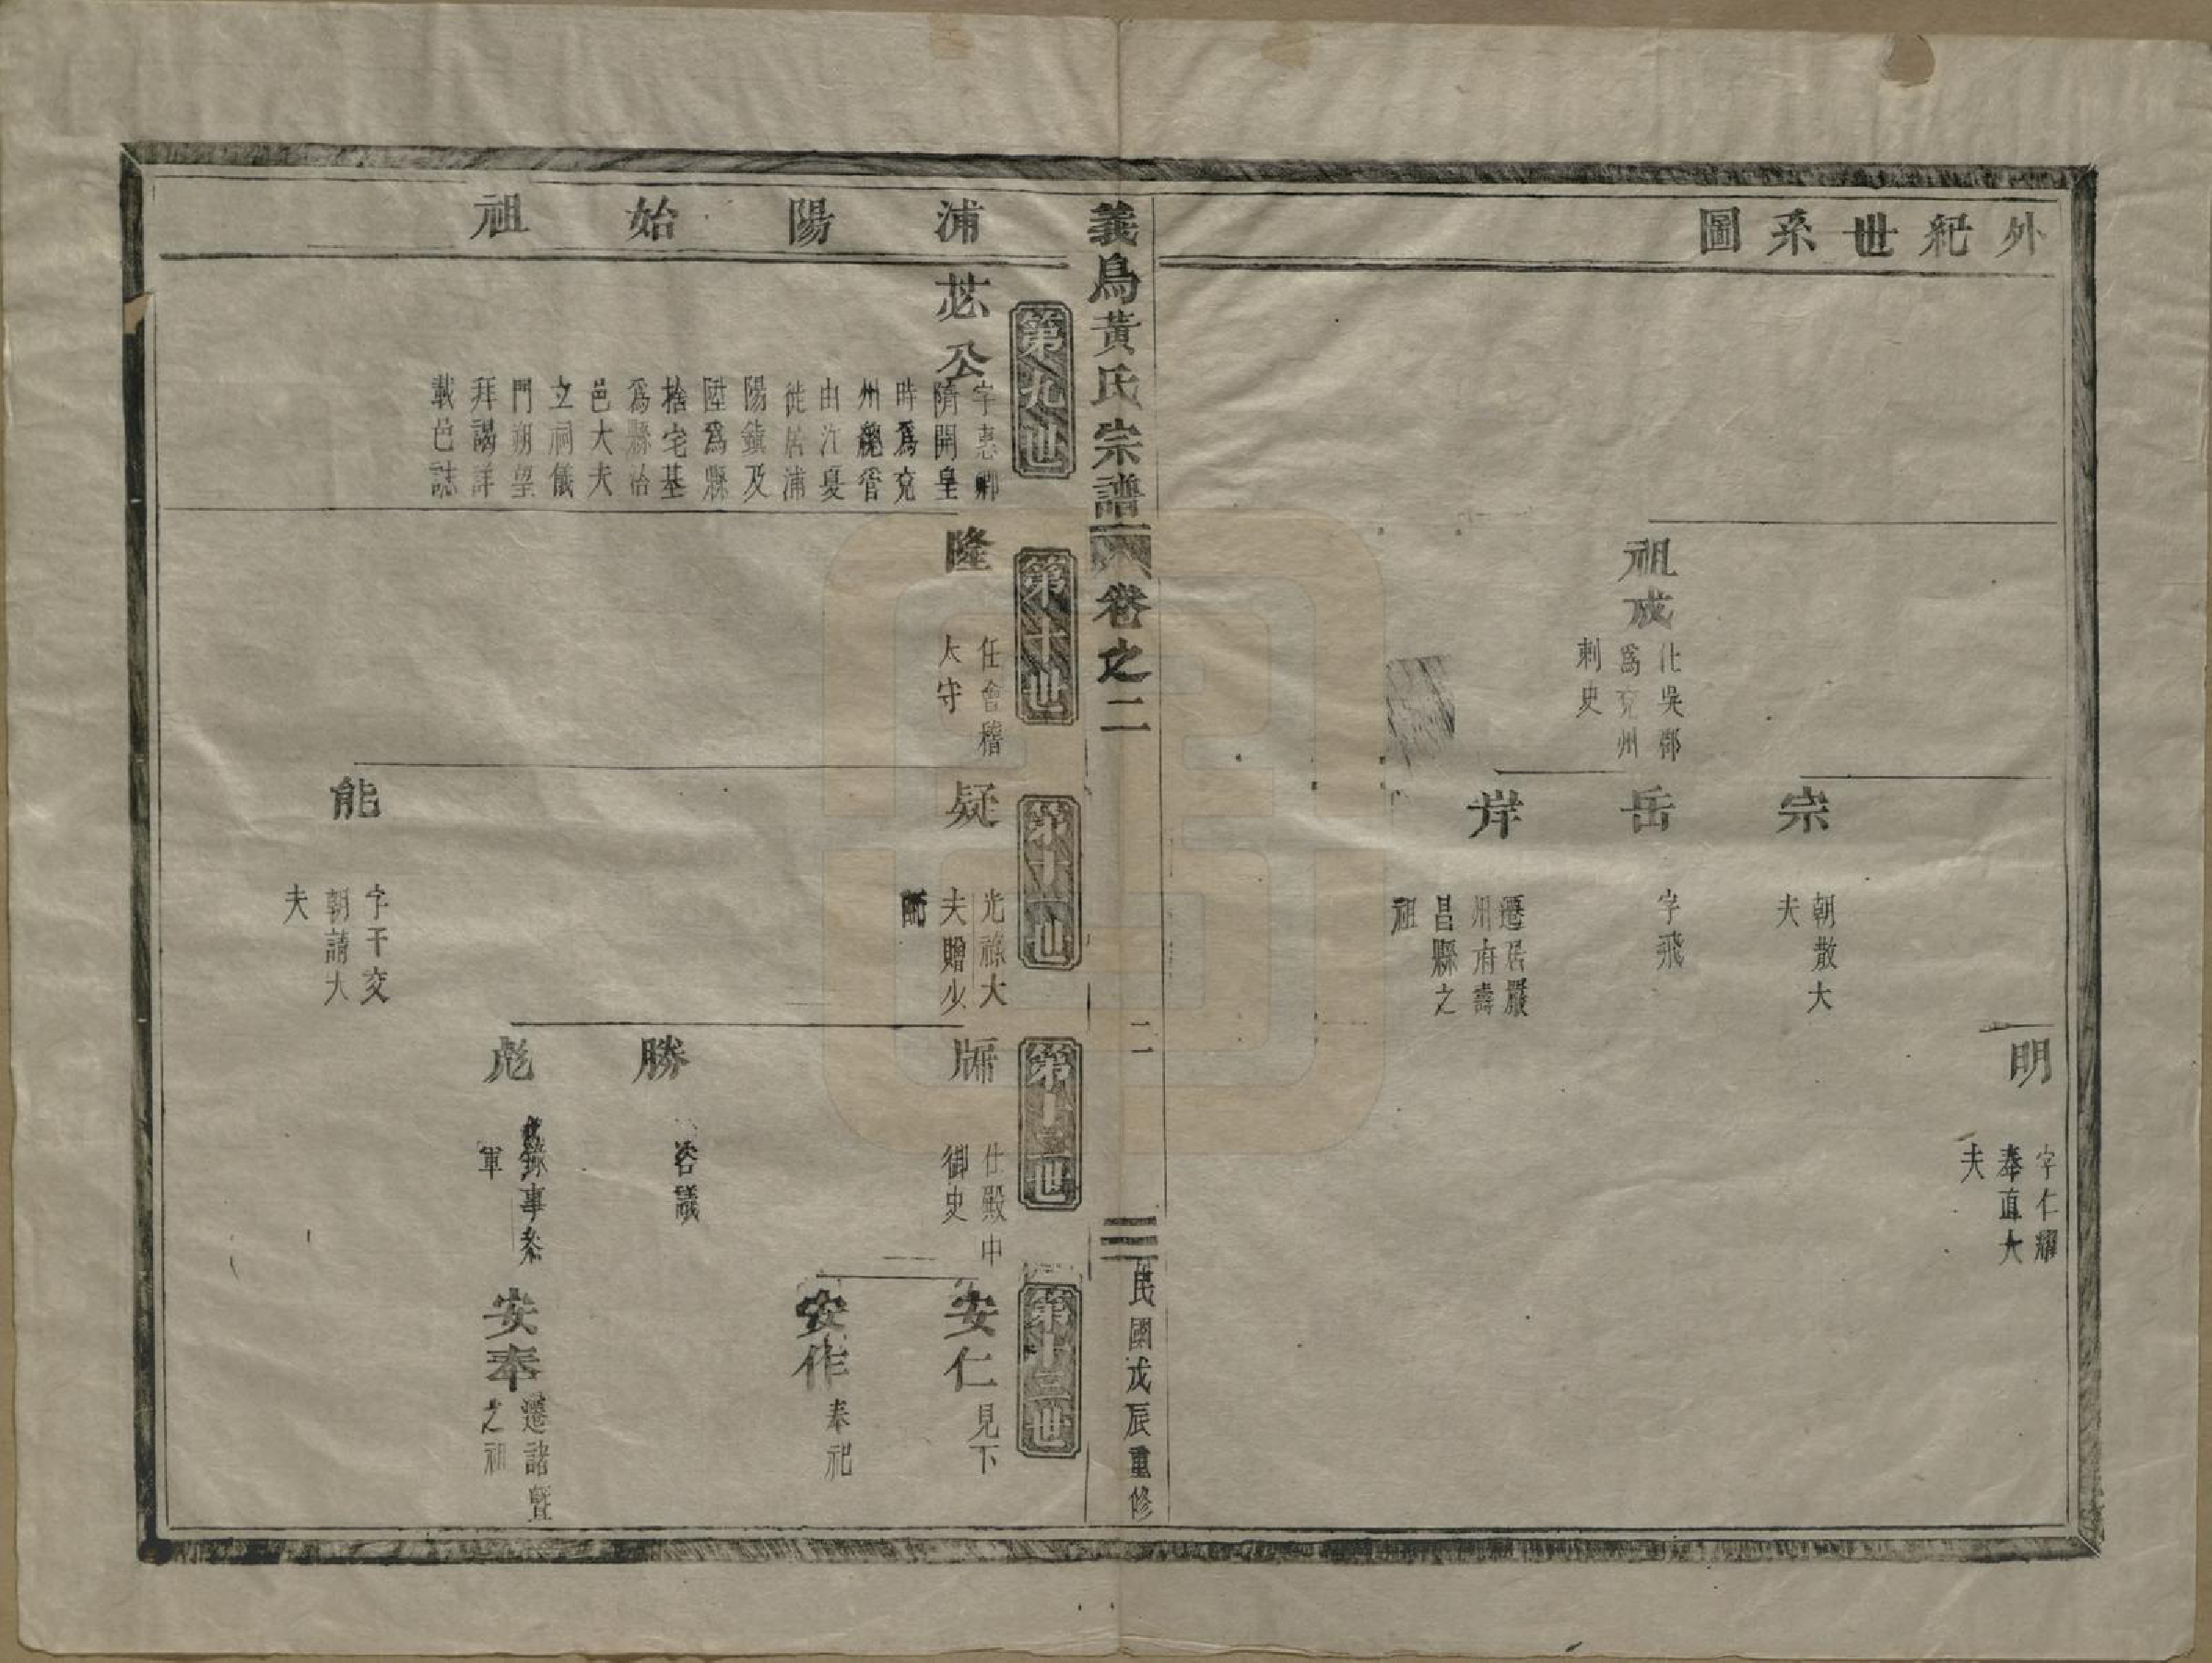 外紀世系圖
祖成
仕吳鄀
爲兖州
刺史
宗
朝散大
夫
岳
字飛
岸
遷居嚴
州府壽
昌縣之
祖
明
字仁耀
奉直大
夫
義烏黃氏宗譜
卷之二
二
民國戊辰重修
浦陽始祖
第九世
苾公
字惠卿
隋開皇
時爲兖
州總管
由江夏
徙居浦
陽鎮及
陞爲縣
捨宅基
爲縣治
邑大夫
立祠儀
門朔望
拜謁詳
載邑誌
第十世
隆
任會稽
大守
第十一世
疑
光祿大
夫贈少
師
能
字于交
朝請大
夫
第十二世
仕殿中
御史
勝
咨議
彪
錄事參
軍
第十三世
安仁
見下
安作
奉祀
安奉
遷諸暨
之祖